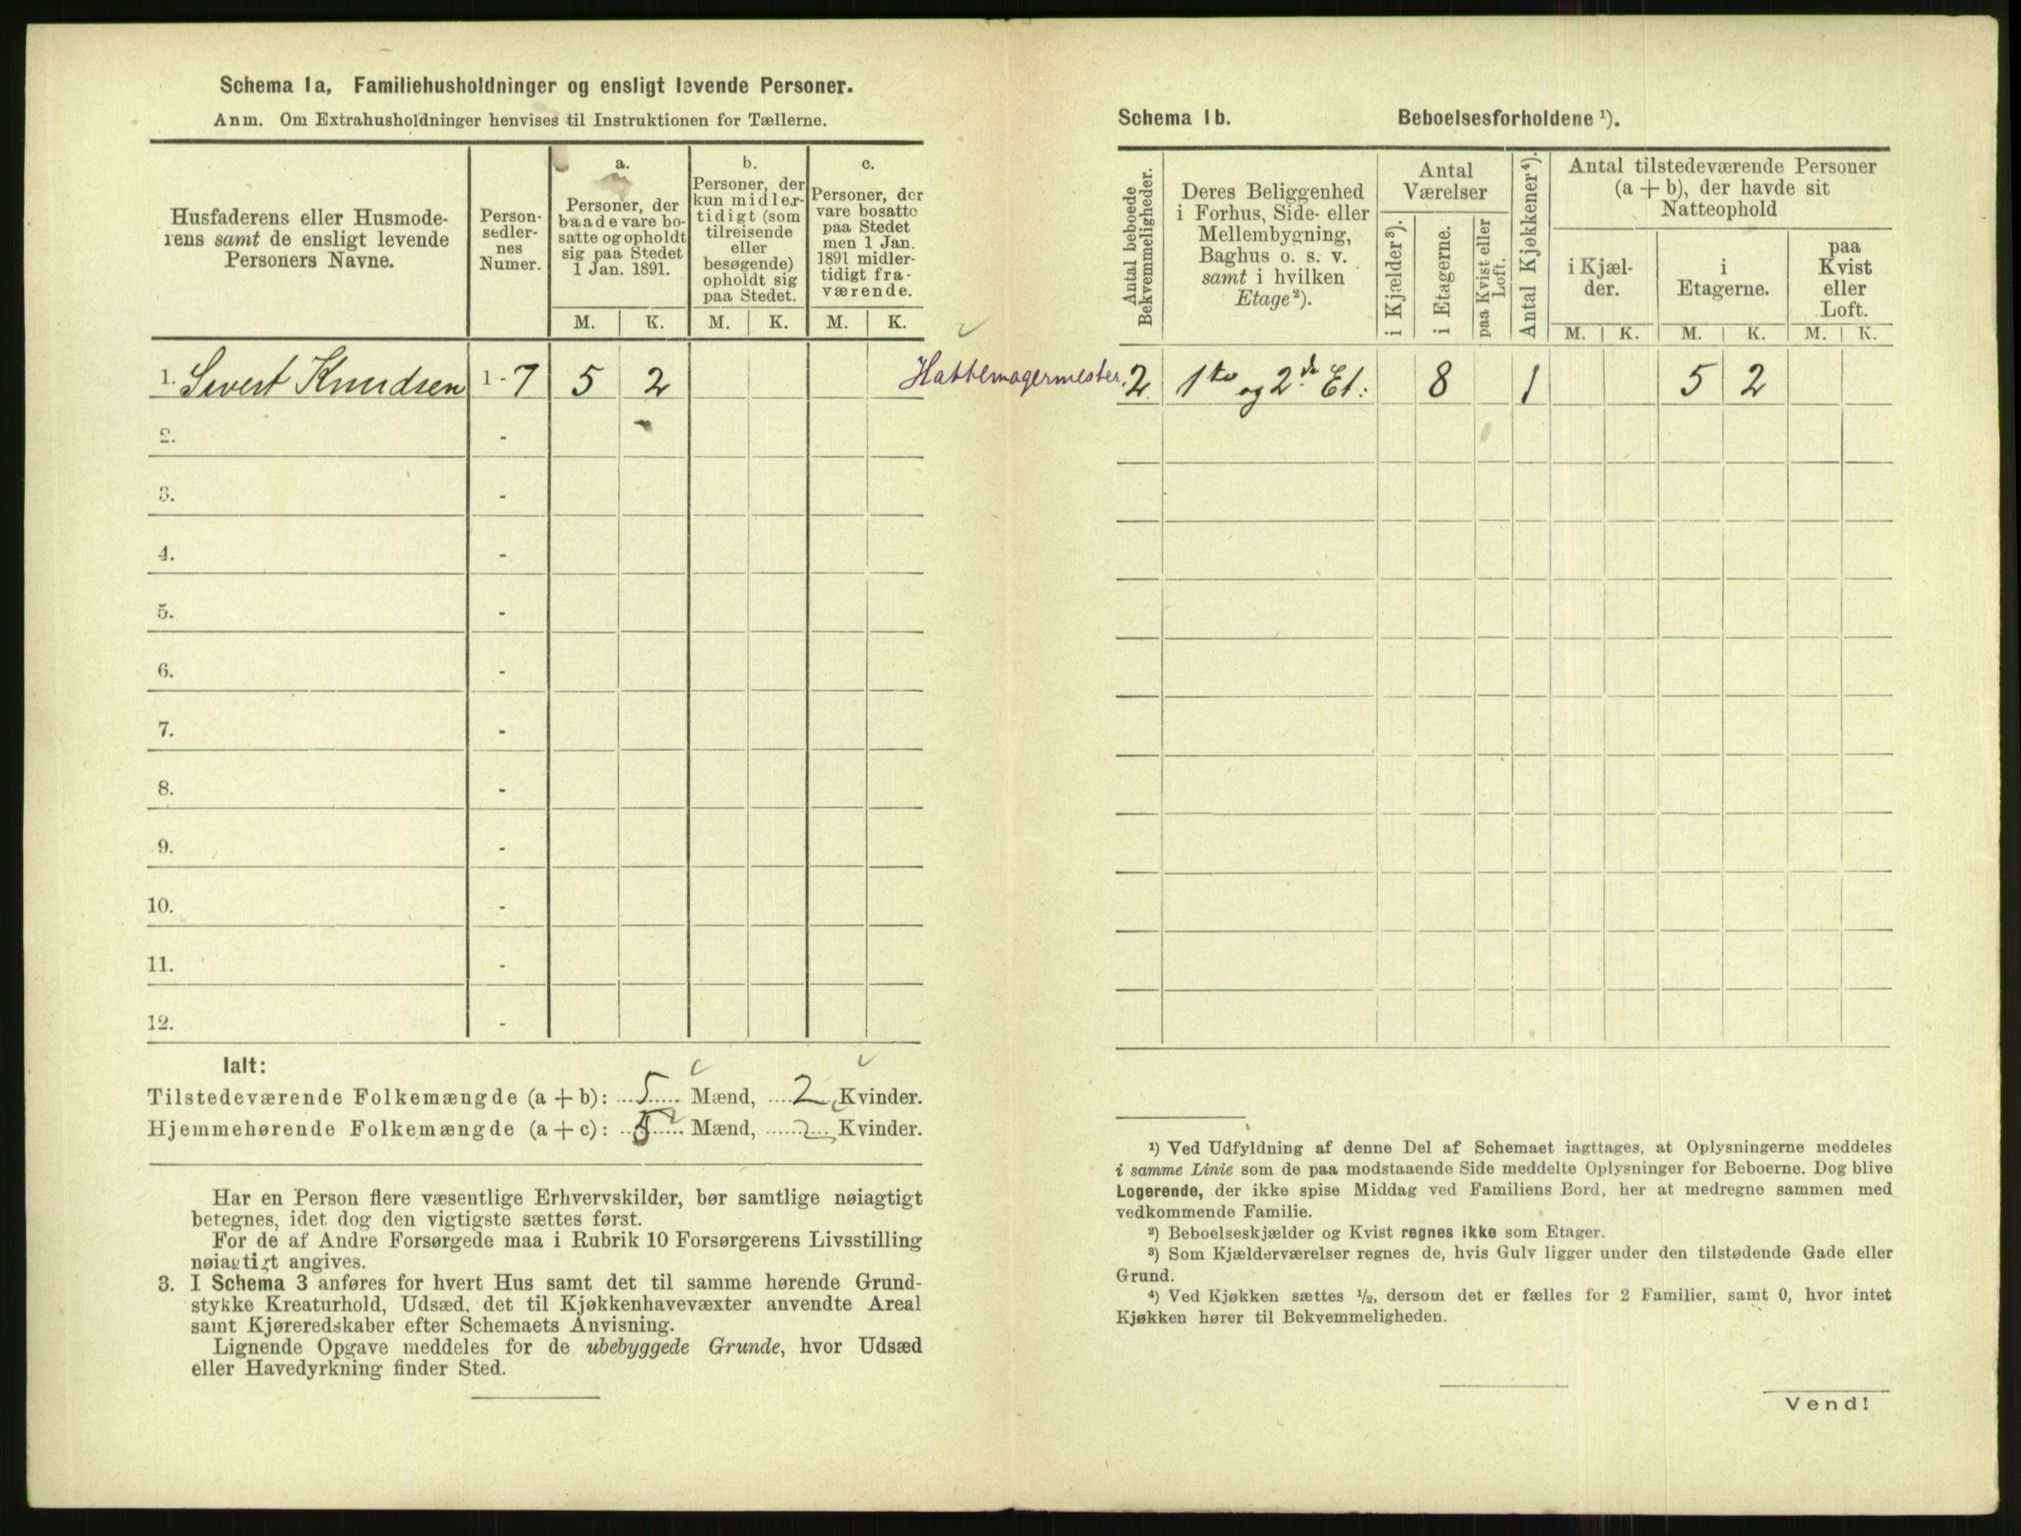 Schema 1a. Familiehusholdninger og ensligt levende Personer.
Anm. Om Extrahusholdninger henvises til Instruktionen for Tællerne.
Husfaderens eller Husmode-
rens samt de ensligt levende
Personers Navne.
Person-
sedler-
nes
Numer.
a.
Personer, der
baade vare bo-
satte og opholdt
sig paa Stedet
1 Jan. 1891.
b.
Personer, der
kun midler-
tidigt (som
tilreisende
eller
besøgende)
opholdt sig
paa Stedet.
c.
Personer, der
vare bosatte
paa Stedet
men 1 Jan.
1891 midler-
tidigt fra-
værende.
M. K. M. K. M. K.
1. Sivert Knudsen 1 - 7 5 2
2. -
3. -
4. -
5. -
6. -
7. -
8. -
9. -
10. -
11. -
12. -
Ialt:
Tilstedeværende Folkemængde (a + b): 5 Mænd, 2 Kvinder.
Hjemmehørende Folkemængde (a + c): 5 Mænd, 2 Kvinder.
Har en Person flere væsentlige Erhvervskilder, bør samtlige nøiagtigt
betegnes, idet dog den vigtigste sættes først.
For de af Andre Forsørgede maa i Rubrik 10 Forsørgerens Livsstilling
nøiagtigt angives.
3. I Schema 3 anføres for hvert Hus samt det til samme hørende Grund-
stykke Kreaturhold, Udsæd, det til Kjøkkenhavevæxter anvendte Areal
samt Kjøreredskaber efter Schemaets Anvisning.
Lignende Opgave meddeles for de ubebyggede Grunde, hvor Udsæd
eller Havedyrkning finder Sted.
Schema 1b. Beboelsesforholdene ¹).
Antal beboede
Bekvemmeligheder.
Deres Beliggenhed
i Forhus, Side- eller
Mellembygning,
Baghus o. s. v.
samt i hvilken
Etage ²).
Antal
Værelser
i Kjælder ³).
i Etagerne.
paa Kvist eller
Loft.
Antal Kjøkkener ⁴).
Antal tilstedeværende Personer
(a + b), der havde sit
Natteophold
i Kjæl-
der.
i
Etagerne.
paa
Kvist
eller
Loft.
M. K. M. K. M. K.
Hattemagermester. 2 1ste og 2de Et: 8 1 5 2
¹) Ved Udfyldning af denne Del af Schemaet iagttages, at Oplysningerne meddeles
i samme Linie som de paa modstaaende Side meddelte Oplysninger for Beboerne. Dog blive
Logerende, der ikke spise Middag ved Familiens Bord, her at medregne sammen med
vedkommende Familie.
²) Beboelseskjælder og Kvist regnes ikke som Etager.
³) Som Kjælderværelser regnes de, hvis Gulv ligger under den tilstødende Gade eller
Grund.
⁴) Ved Kjøkken sættes ¹/₂, dersom det er fælles for 2 Familier, samt 0, hvor intet
Kjøkken hører til Bekvemmeligheden.
Vend!